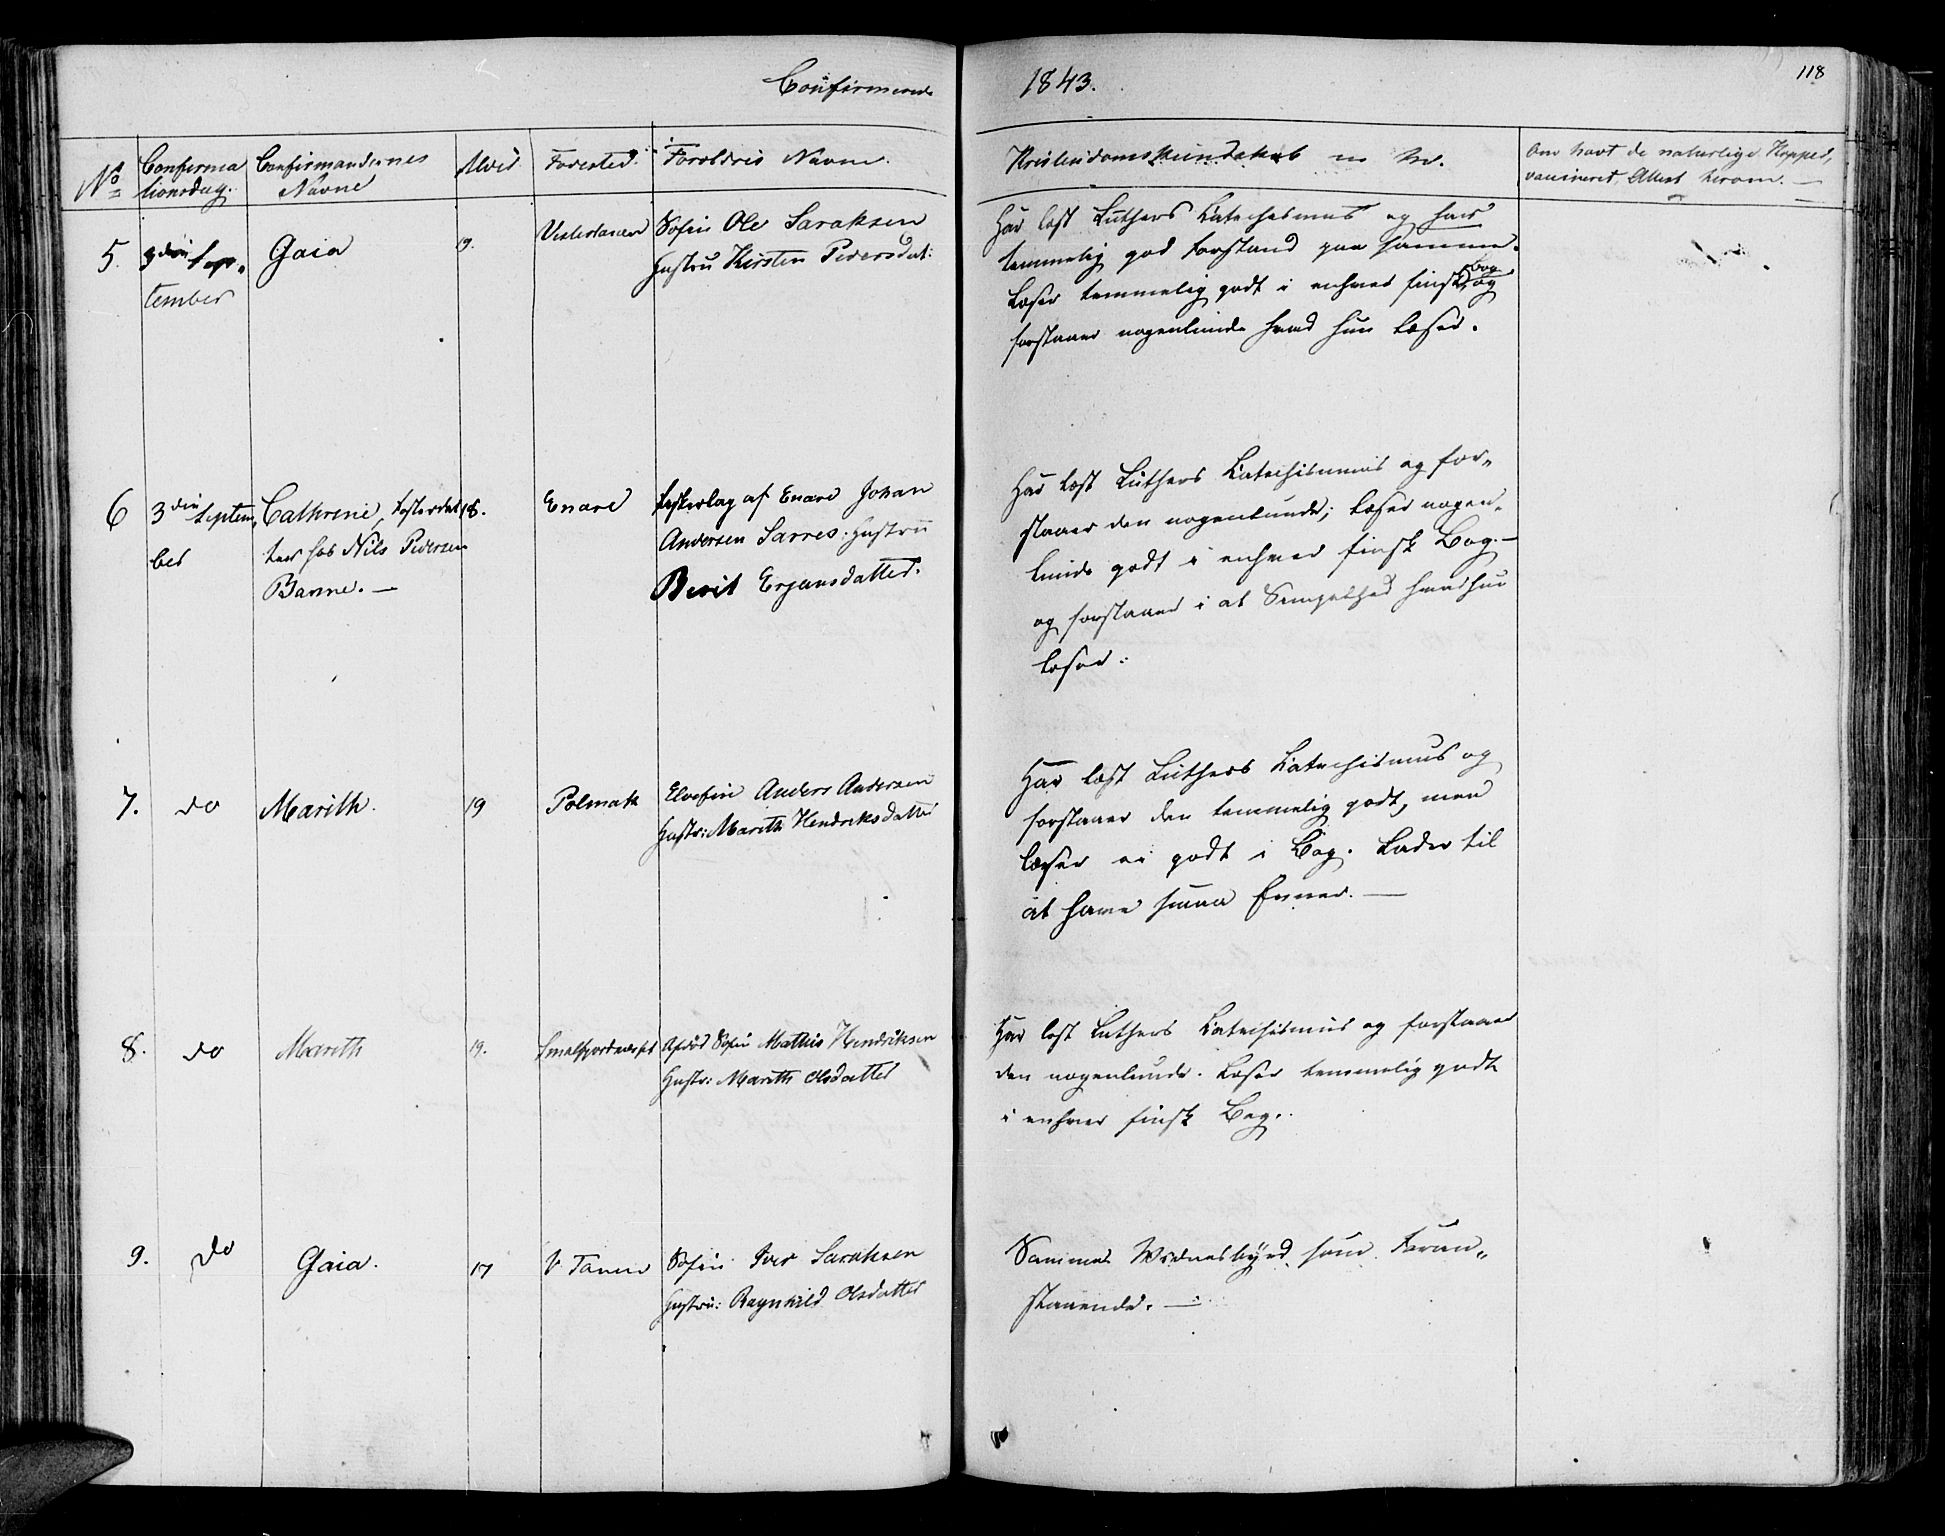 Confirmerede 1843.
118
No
Confirma
tionsdag.
Confirmandernes
Navne
Alder
Foested.
Foreldris Navne.
Kristendomskundskab m. m.
Om havt de naturlige Kopper,
vaccineret, Attest herom. —
5.
3die Sep-
tember
Gaia
19.
Vestertanen
Søfin Ole Saraksen
Hustru Kirsten Pedersdat:
Har læst Luthers Katechesmus og har
temmelig god Forstand paa samme.
Læser temmelig godt i enhver finsk Bog og
forstaaer nogenlunde hvad hun læser.
6
3die Septem,
ber
Cathrine, Fosterdat
ter hos Nils Pedersen
Banne. —
18.
Enare
Fiskerlag af Enare Johan
Andersen Sarres. Hustru
Berit Erjansdatter.
Har læst Luthers Katechismus og for-
staaer den nogenlunde; læser nogen-
lunde godt i enhver finsk Bog. —
og forstaaer i al Simpelhed hvad hun
læser.
7.
do
Marith.
19
Polmak
Elvefin Anders Andersen
Hustr: Marith Hendriksdatter
Har læst Luthers Katechismus og
forstaaer den temmelig godt, men
læser ei godt i Bog. Lader til
at have smaa Evner. —
8.
do
Marith
19.
Smalfjordnæsset
Afdød Søfin Mathis Hendriksen
Hustr: Marith Olsdatter
Har læst Luthers Katechismus og forstaaer
den nogenlunde. Læser temmelig godt
i enhver finsk Bog.
9.
do
Gaia.
17
V Tanen
Søfin Iver Saraksen
Hustru: Ragnhild Olsdatter
Sammes Vidnesbyrd som Foran-
staaende. —